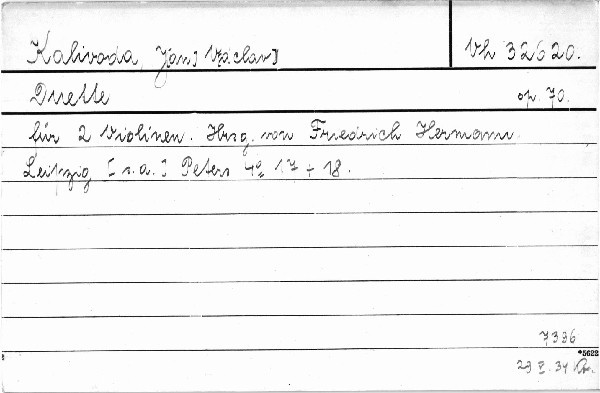 Kalivoda, J[an] Václav] Vh 32620.
Duette op. 70.
für 2 Violinen. Hrsg. von Friedrich Hermann.
Leipzig [s.a.] Peters 4° 17 + 18.
7336
*5622
23 V. 34